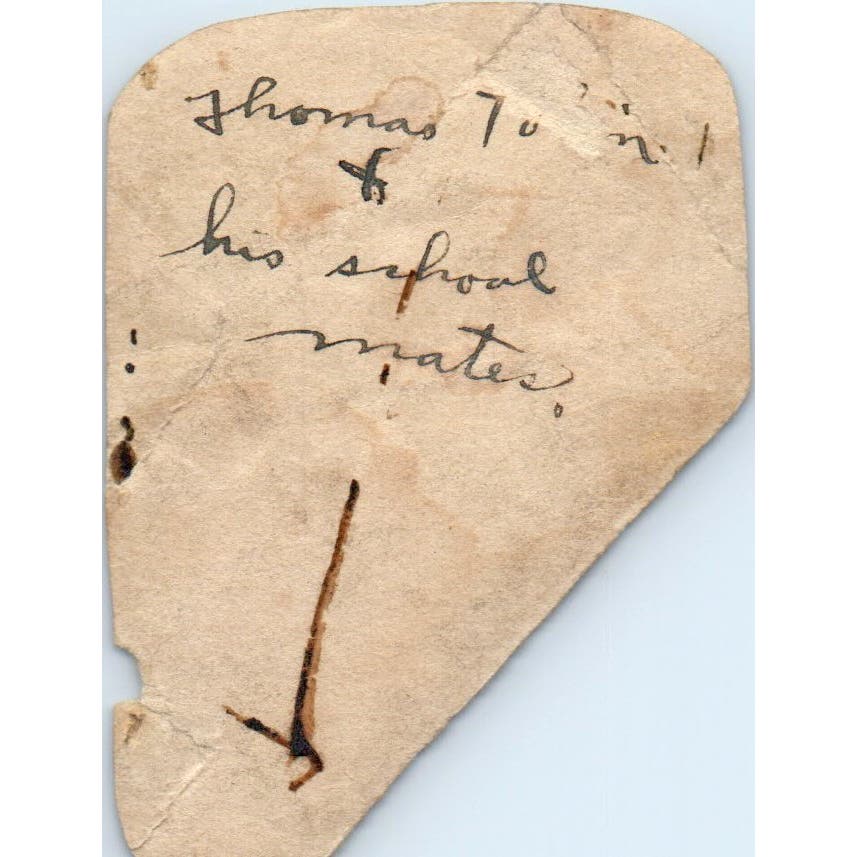 Thomas
&
his school
mates.